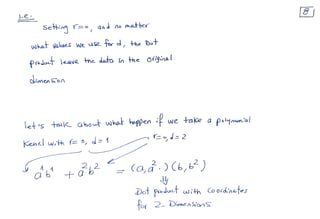 8
i.e.
Setting r=0, and no matter
what values we use for d, the Dot
product leave the data in the original
dimension
Let's talk about what happen if we take a polynomial
Kernel with r=0, d=1
r=0, d=2
a¹b¹ + a²b² = (a, a².)(b, b²)
⇓
Dot product with coordinates
for 2-Dimensions